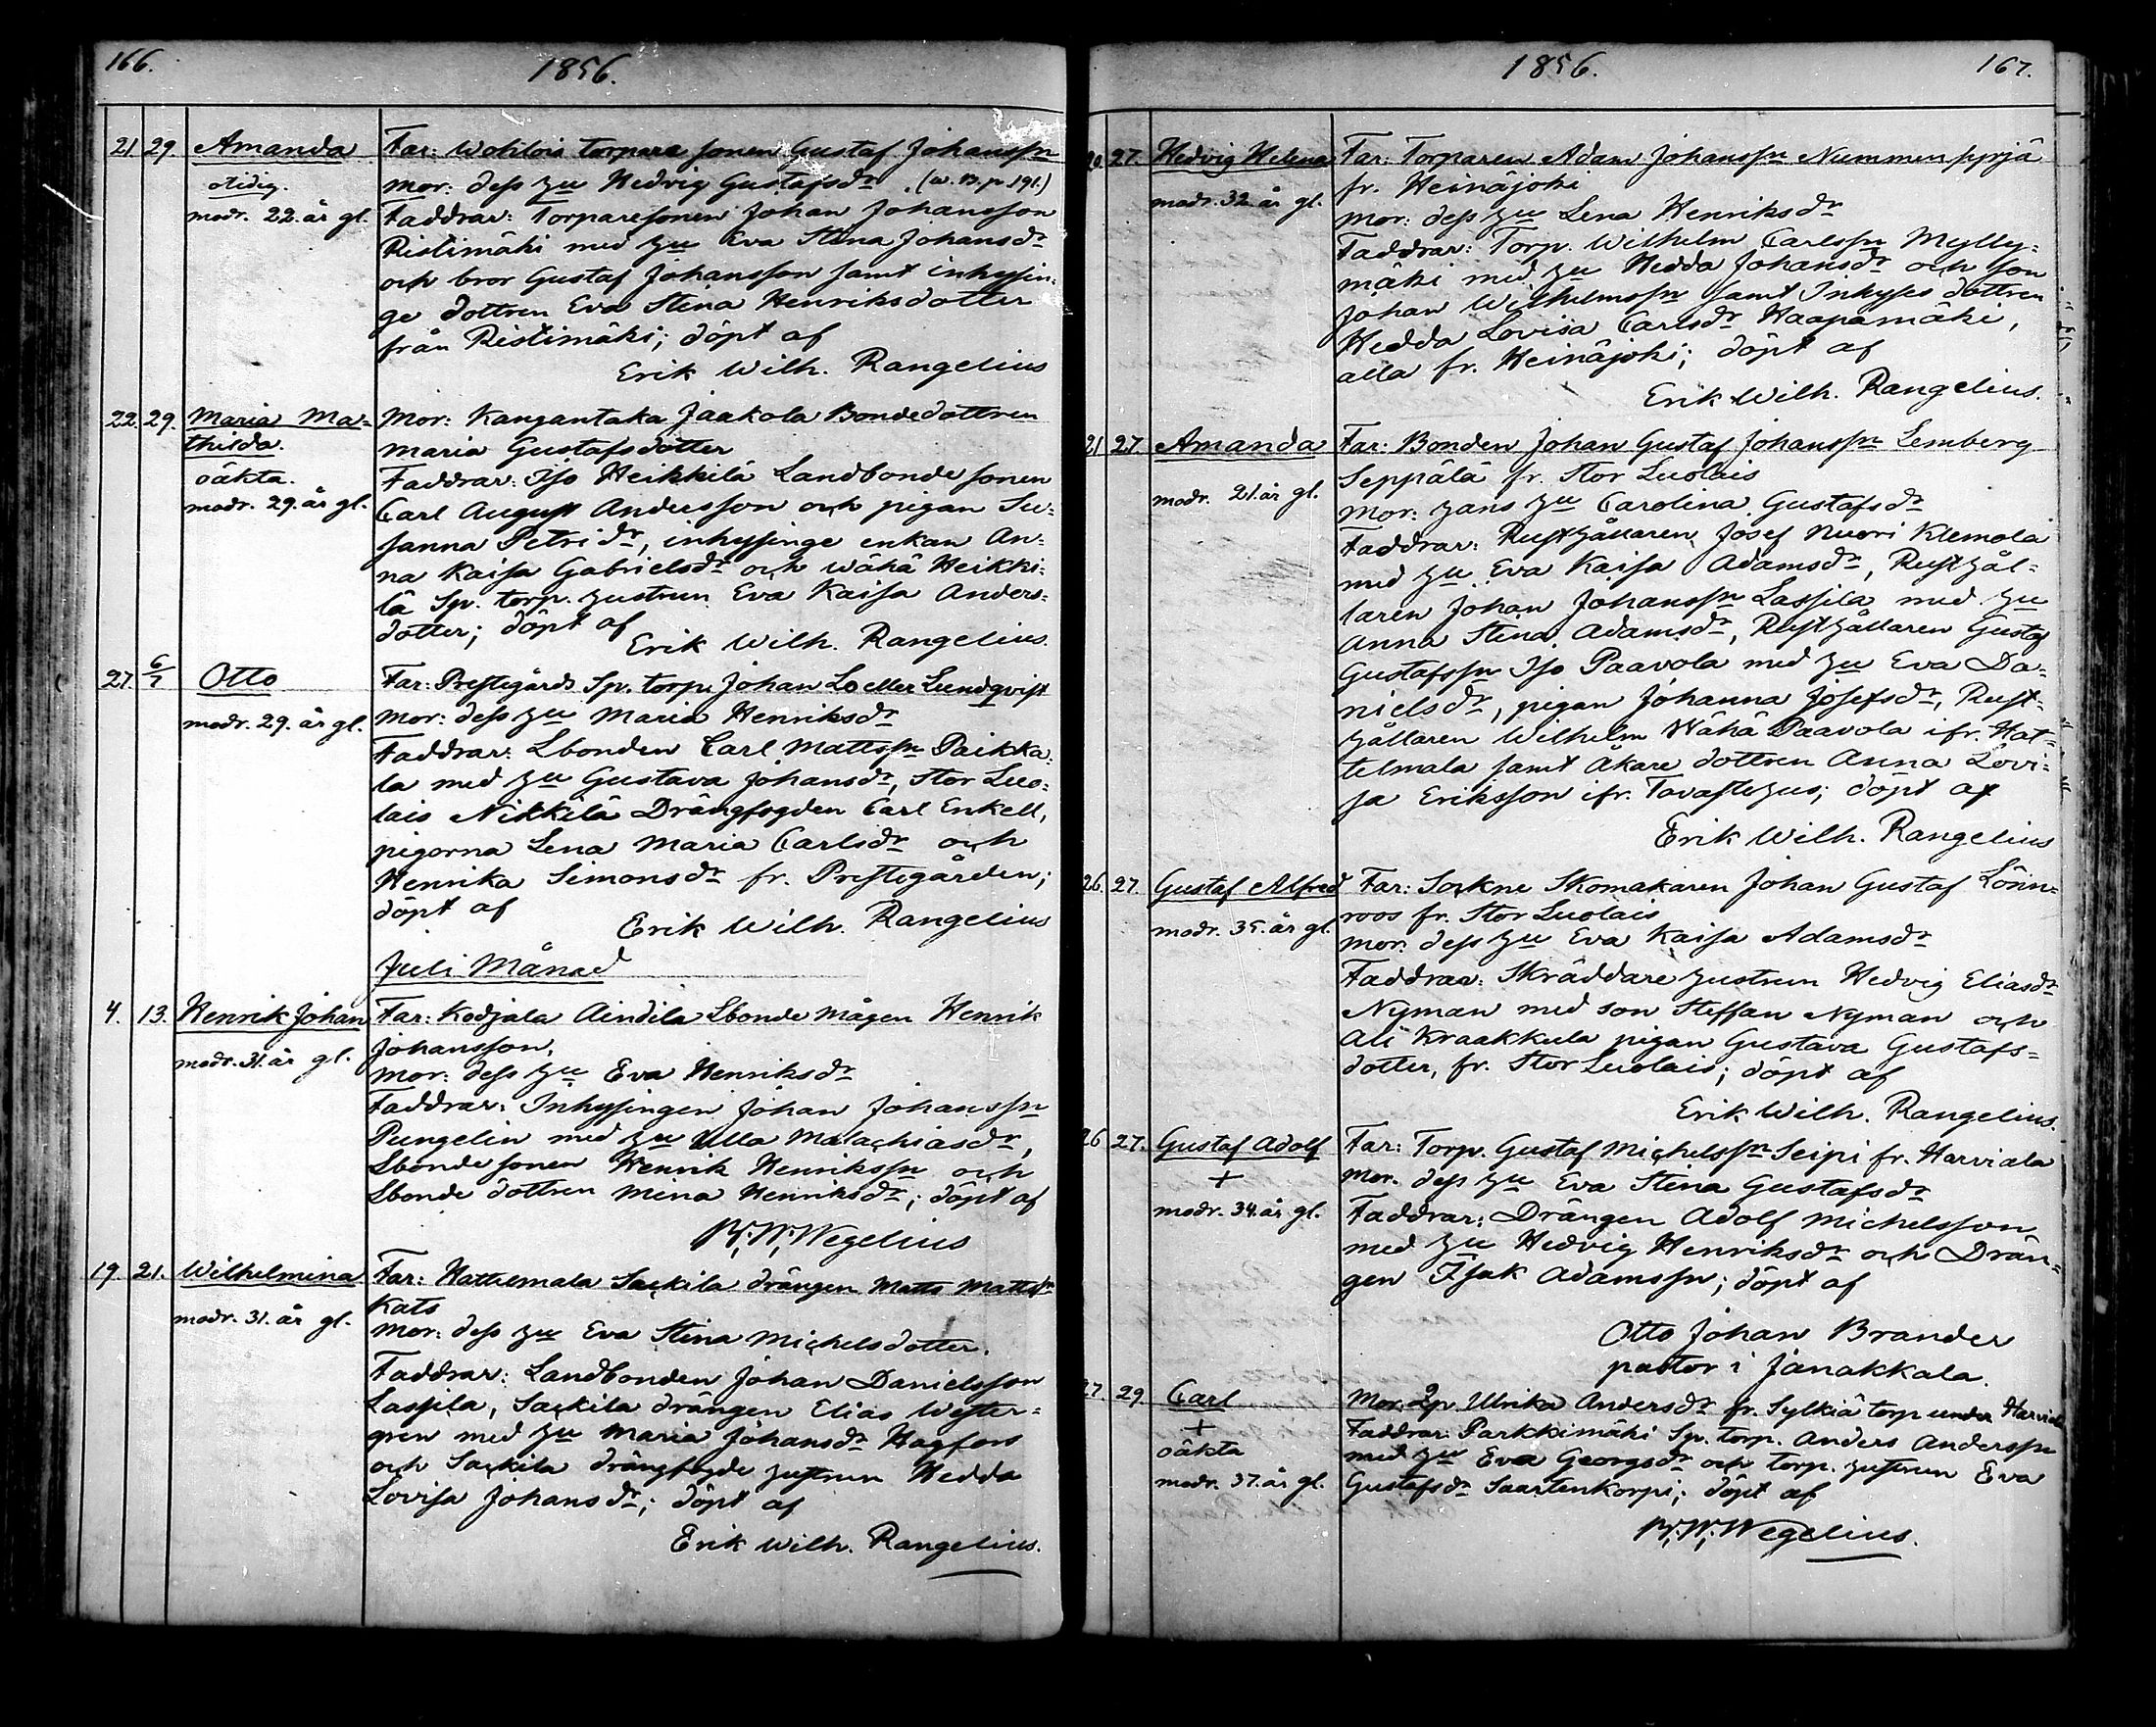 166.
1856.
21. 29. Amanda
otidig.
modr. 22. år gl.
Far: Wohlois torpare sonen Gustaf Johanssn
mor: dess hu Hedvig Gustafsdr. (w. B. p. 191.)
Faddrar: Torparesonen Johan Johansson
Ristimäki med hu Eva Stina Johansdr
och bror Gustaf Johansson samt inhysin-
ge dottren Eva Stina Henriksdotter
från Ristimäki; döpt af
Erik Wilh. Rangelius
22. 29. Maria Ma-
thilda.
oäkta.
modr. 29. år gl.
Mor: Kangantaka Jaakola Bondedottren
Maria Gustafsdotter
Faddrar: Iso Heikkilä Landbonde sonen
Carl August Andersson och pigan Su-
sanna Petri dr, inhysinge enkan An-
na Kaisa Gabrielsdr och Wähä Heikki-
lä Sp. torp. hustrun Eva Kaisa Anders-
dotter; döpt af
Erik Wilh. Rangelius.
27. 6/7 Otto
modr. 29. år gl.
Far: Prestegårds Sp. torp. Johan Loeller Lundqvist
Mor: dess hu Maria Henriksdr
Faddrar: Lbonden Carl Mattssn Paikka-
la med hu Gustava Johansdr, Stor Luo-
lais Nikkilä Drängfogden Carl Enkell,
pigorna Lena Maria Carlsdr och
Henrika Simonsdr fr. Prestegården;
döpt af
Erik Wilh. Rangelius
Juli Månad
4. 13. Henrik Johan
modr. 31. år gl.
Far: Kodjala Aindila Lbonde mågen Henrik
Johansson,
Mor: dess hu Eva Henriksdr
Faddrar: Inhysingen Johan Johanssn
Pungelin med hu Ulla Malachiasdr,
Lbonde sonen Henrik Henrikssn och
Lbonde dottren Mina Henriksdr; döpt af
W. Wegelius
19. 21. Wilhelmina
modr. 31. år gl.
Far: Hattelmala Sackila drängen Matts Mattssn
Kats
Mor: dess hu Eva Stina Michelsdotter.
Faddrar: Landbonden Johan Danielsson
Lassila, Sackila drängen Elias Wester-
gren med hu Maria Johansdr Hagfors
och Sackila drängfogde hustrun Hedda
Lovisa Johansdr; döpt af
Erik Wilh. Rangelius.
1856.
167.
20. 27. Hedvig Helena
modr. 32. år gl.
Far: Torparen Adam Johanssn Nummensyrjä
fr. Heinäjoki
Mor: dess hu Lena Henriksdr
Faddrar: Torp. Wilhelm Carlssn Mylly-
mäki med hu Hedda Johansdr och son
Johan Wilhelmssn samt Inhyses dottren
Hedda Lovisa Carlsdr Haapamäki,
alla fr. Heinäjoki; döpt af
Erik Wilh. Rangelius.
21 27. Amanda
modr. 21. år gl.
Far: Bonden Johan Gustaf Johanssn Lemberg
Seppälä fr. Stor Luolais
Mor: hans hu Carolina Gustafsdr
Faddrar: Rusthållaren Josef Nuori Klemola
med hu Eva Kaisa Adamsdr, Rusthål-
laren Johan Johanssn Lassila med hu
Anna Stina Adamsdr, Rusthållaren Gustaf
Gustafssn Iso Paavola med hu Eva Da-
nielsdr, pigan Johanna Josefsdr, Rust-
hållaren Wilhelm Wähä Paavola ifr. Hat-
telmala samt Åkare dottren Anna Lovi-
sa Eriksson ifr. Tavastehus; döpt af
Erik Wilh. Rangelius
26. 27. Gustaf Alfred
modr. 35. år gl.
Far: Sockne Skomakaren Johan Gustaf Lönn-
roos fr. Stor Luolais
Mor. dess hu Eva Kaisa Adamsdr
Faddrar: Skräddare hustrun Hedvig Eliasdr
Nyman med son Steffan Nyman och
Ali Kraakkula pigan Gustava Gustafs-
dotter, fr. Stor Luolais; döpt af
Erik Wilh. Rangelius.
26 27. Gustaf Adolf
+
modr. 34. år gl.
Far: Torp. Gustaf Michelssn Seipi fr. Harviala
Mor. dess hu Eva Stina Gustafsdr
Faddrar: Drängen Adolf Michelsson
med hu Hedvig Henriksdr och Drän-
gen Isak Adamssn; döpt af
Otto Johan Brander
pastor i Janakkala.
27. 29 Carl
+
oäkta
modr. 37. år gl.
Mor. Qp Ulrika Andersdr fr. Sylkiä torp under Harviala
Faddrar: Parkkimäki Sp. torp. Anders Anderssn
med hu Eva Georgsdr och torp. hustrun Eva
Gustafsdr Saartenkorpi; döpt af
W. Wegelius.